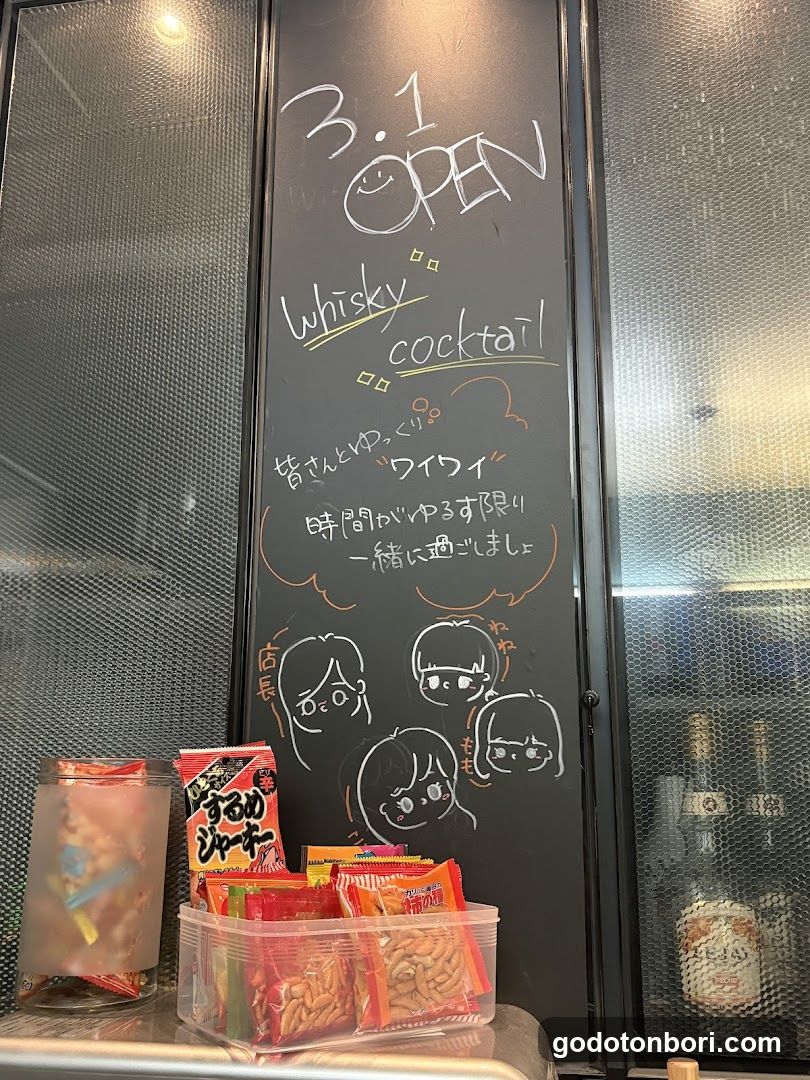 3.1
OPEN
whisky
cocktail
皆さんとゆっくり
"ワイワイ"
時間がゆるす限り
一緒に過ごしましょ
店長
ねね
もも
ピリ辛
するめ
ジャーキー
柿の種
LEJAY
godotonbori.com